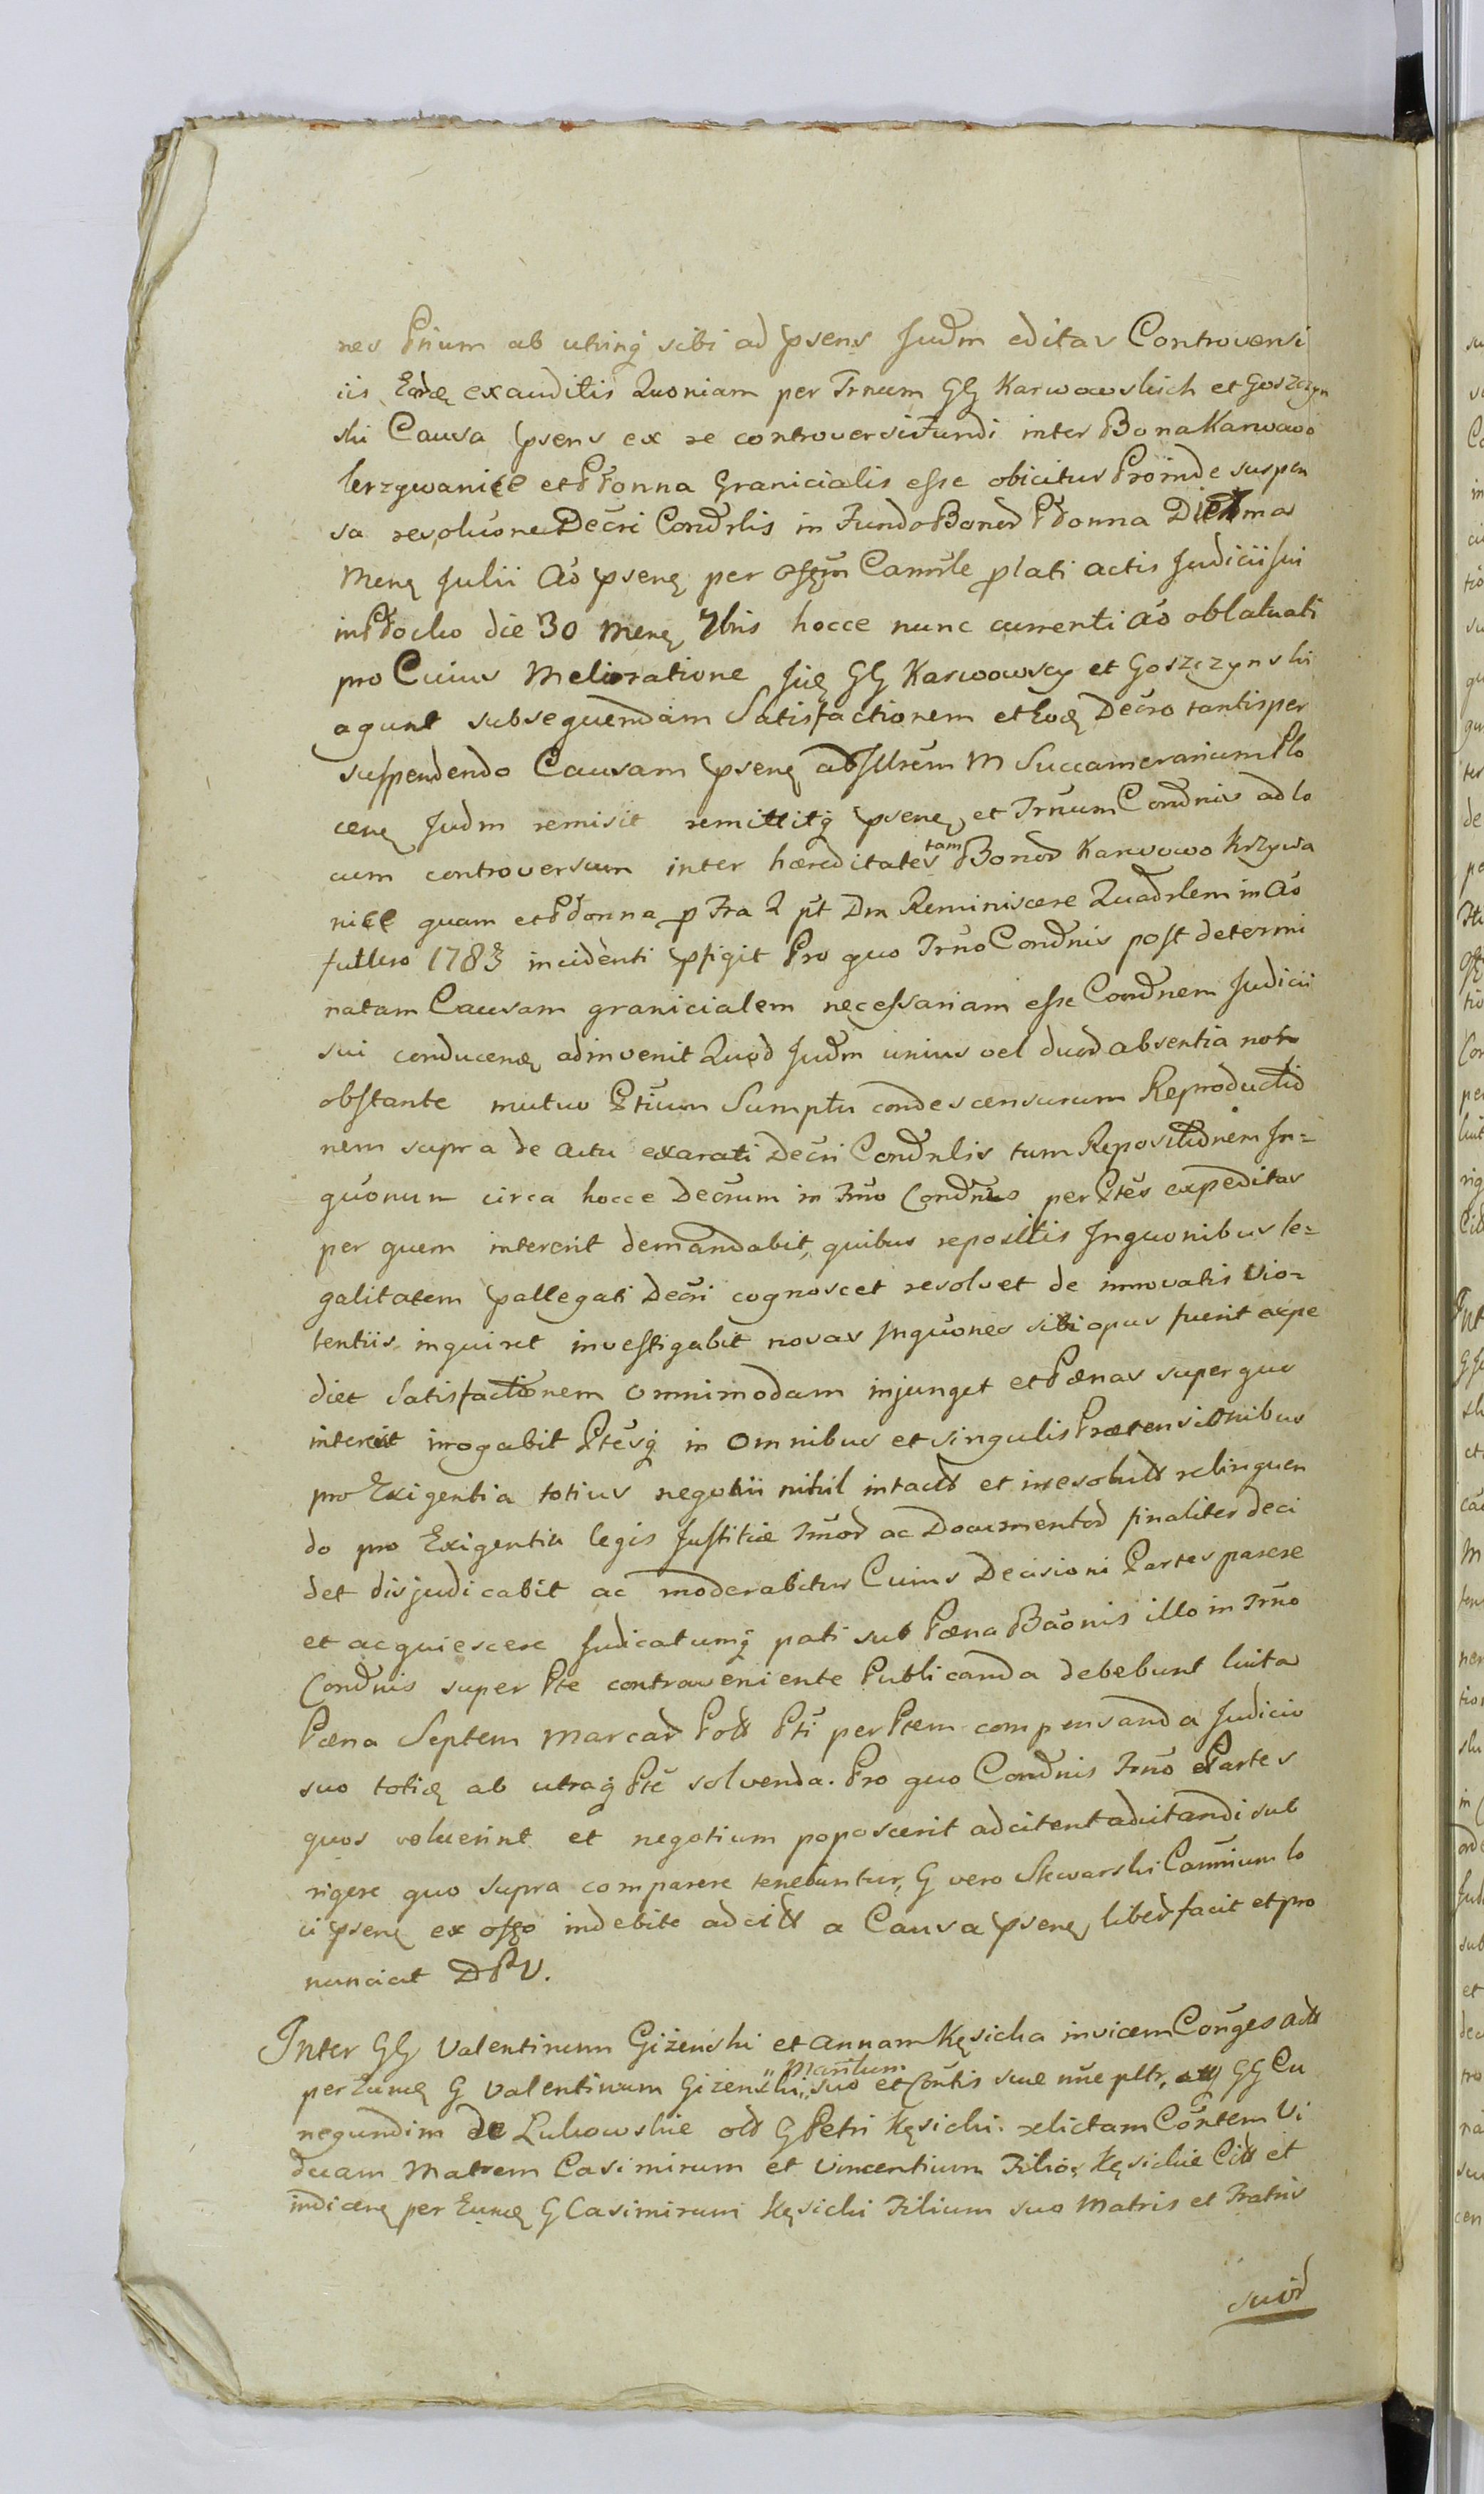 nes Ptium ab utrinq sibi ad psens Judm editas Controversi
iis Eordę exauditis Quoniam per Trnum GG Karwowskich et Goszczyn
ski Causa psens ex re controversi Fundi inter Bona Karwowo
krzywanice et Płonna Granicialis esse obicitur Proinde suspen
sa resoluone Decri Condrlis in Fundo Bonor Płonna Die ma
Menę Julii Ao psenę per offm Camrle plati actis Judicii sui
in Płocko die 30 Menę 7bris hocce nunc currenti Ao oblatuati
pro Cuius Melioratione Juę GG Karwowscy et Goszczynski
agunt subsequendam Satisfactionem et Eodę Decro tantisper
suspendendo Causam psenę ad Illrem M Succamerarium Plo
cenę Judm remisit remittitq psenę et Trnum Condnis ad lo
cum controversum inter hæreditates tam Bonor Karwowo Krzywa
nice quam et Płonna p Fra 2 pt Dm Reminiscere Quadrlem in Ao
futuro 1783 incidenti pfigit Pro quo Trno Condnis post determi
natam Causam granicialem necessariam esse Condnem Judicii
sui conducenę adinvenit Quod Judm unius vel duor absentia non
obstante mutuo Ptium Sumptu condescensurum Reproductio
nem supra de actu exarati Decri Condrlis tum Repositionem In=
quonum circa hocce Decrum in Trno Condnis per Ptes expeditas
per quem intererit demandabit, quibus repositis Inquonibus le=
galitatem pallegati Decri cognoscet resolvet de innovatis Vio=
lentiis inquiret investigabit novas Inquones sibi opus fuerit expe
diet Satisfactionem omnimodam injunget et Pœnas super quo
intererit irrogabit Ptesq in Omnibus et singulis Prætensionibus
pro Exigentia totius negotii nihil intactt et irresolutt relinquen
do pro Exigentia legis Justitiæ Trnor ac Documentor finaliter deci
det disjudicabit ac moderabitur Cuius Decisioni Partes parere
et acquiescere Judicatumq pati sub Pœna Baonis illo in Trno
Condnis super Pte contraveniente Publicanda debebunt luita
Pœna Septem Marcar Poll Pti per Ptem compensanda Judicio
suo totię ab utraq Pte solvenda. Pro quo Condnis Trno Partes
quos voluerint et negotium poposcerit adcitent adcitandi sub
rigore quo supra comparere tenebuntur, G vero Skwarski Camrium lo
ci psenę ex offo indebite adcitt a Causa psenę liber facit et pro
nunciat DPV.
Inter GG Valentinum Giżenski et Annam Kęsicka invicem Conges actt
per Eumę G Valentinum Gizenski „Maritum„ suo et Contis suæ nne pltr, atq GG Cu
negundim de Lukowskie olt G Petri Kęsicki relictam Contem Vi
duam Matrem Casimirum et Vincentium Filios Kęsickie Citt et
indicenę per Eumę G Casimirum Kęsicki Filium suo Matris et Fratris
suor